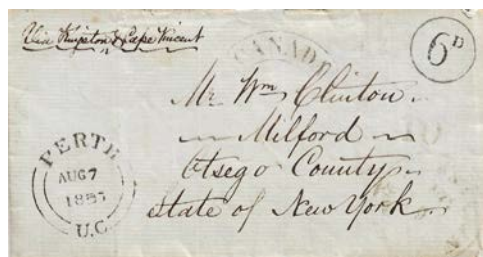 Via Kingston & Cape Vincent
CANADA
6D
Mr. Wm Clinton
Milford
Otsego County
State of New York
PERTH
AUG 7
U.C